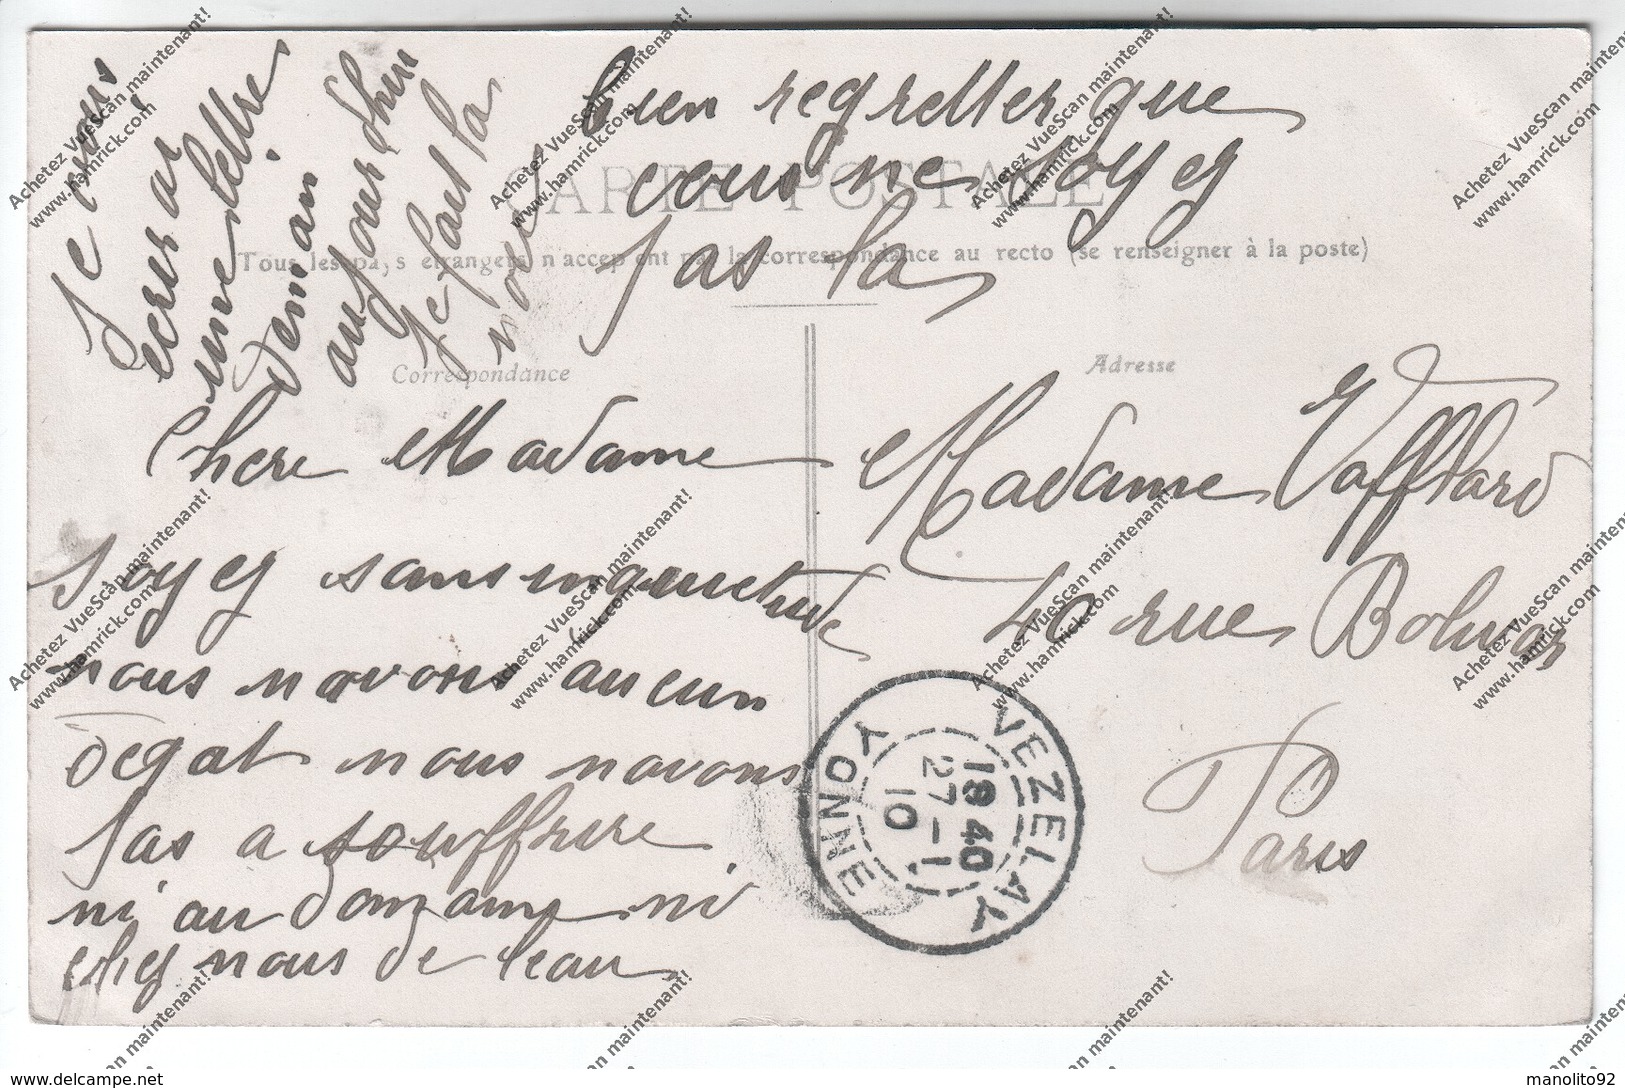 Je vous
ecrirai
une lettre
demain
aujourdhui
je fait la
noce
bien regretter que
vous ne soyez
pas la
CARTE POSTALE
Tous les pays etrangers n'acceptent pas la correspondance au recto (se renseigner à la poste)
Correspondance
Adresse
Chere Madame
soyez sans inquietude
nous navons aucun
degat nous navons
pas a souffrire
ni au domaine ni
chez nous de leau
Madame Vafflard
40 rue Bolivar
Paris
VEZELAY
18 40
27 - 1
10
YONNE
Achetez VueScan maintenant!
www.hamrick.com
www.delcampe.net
manolito92